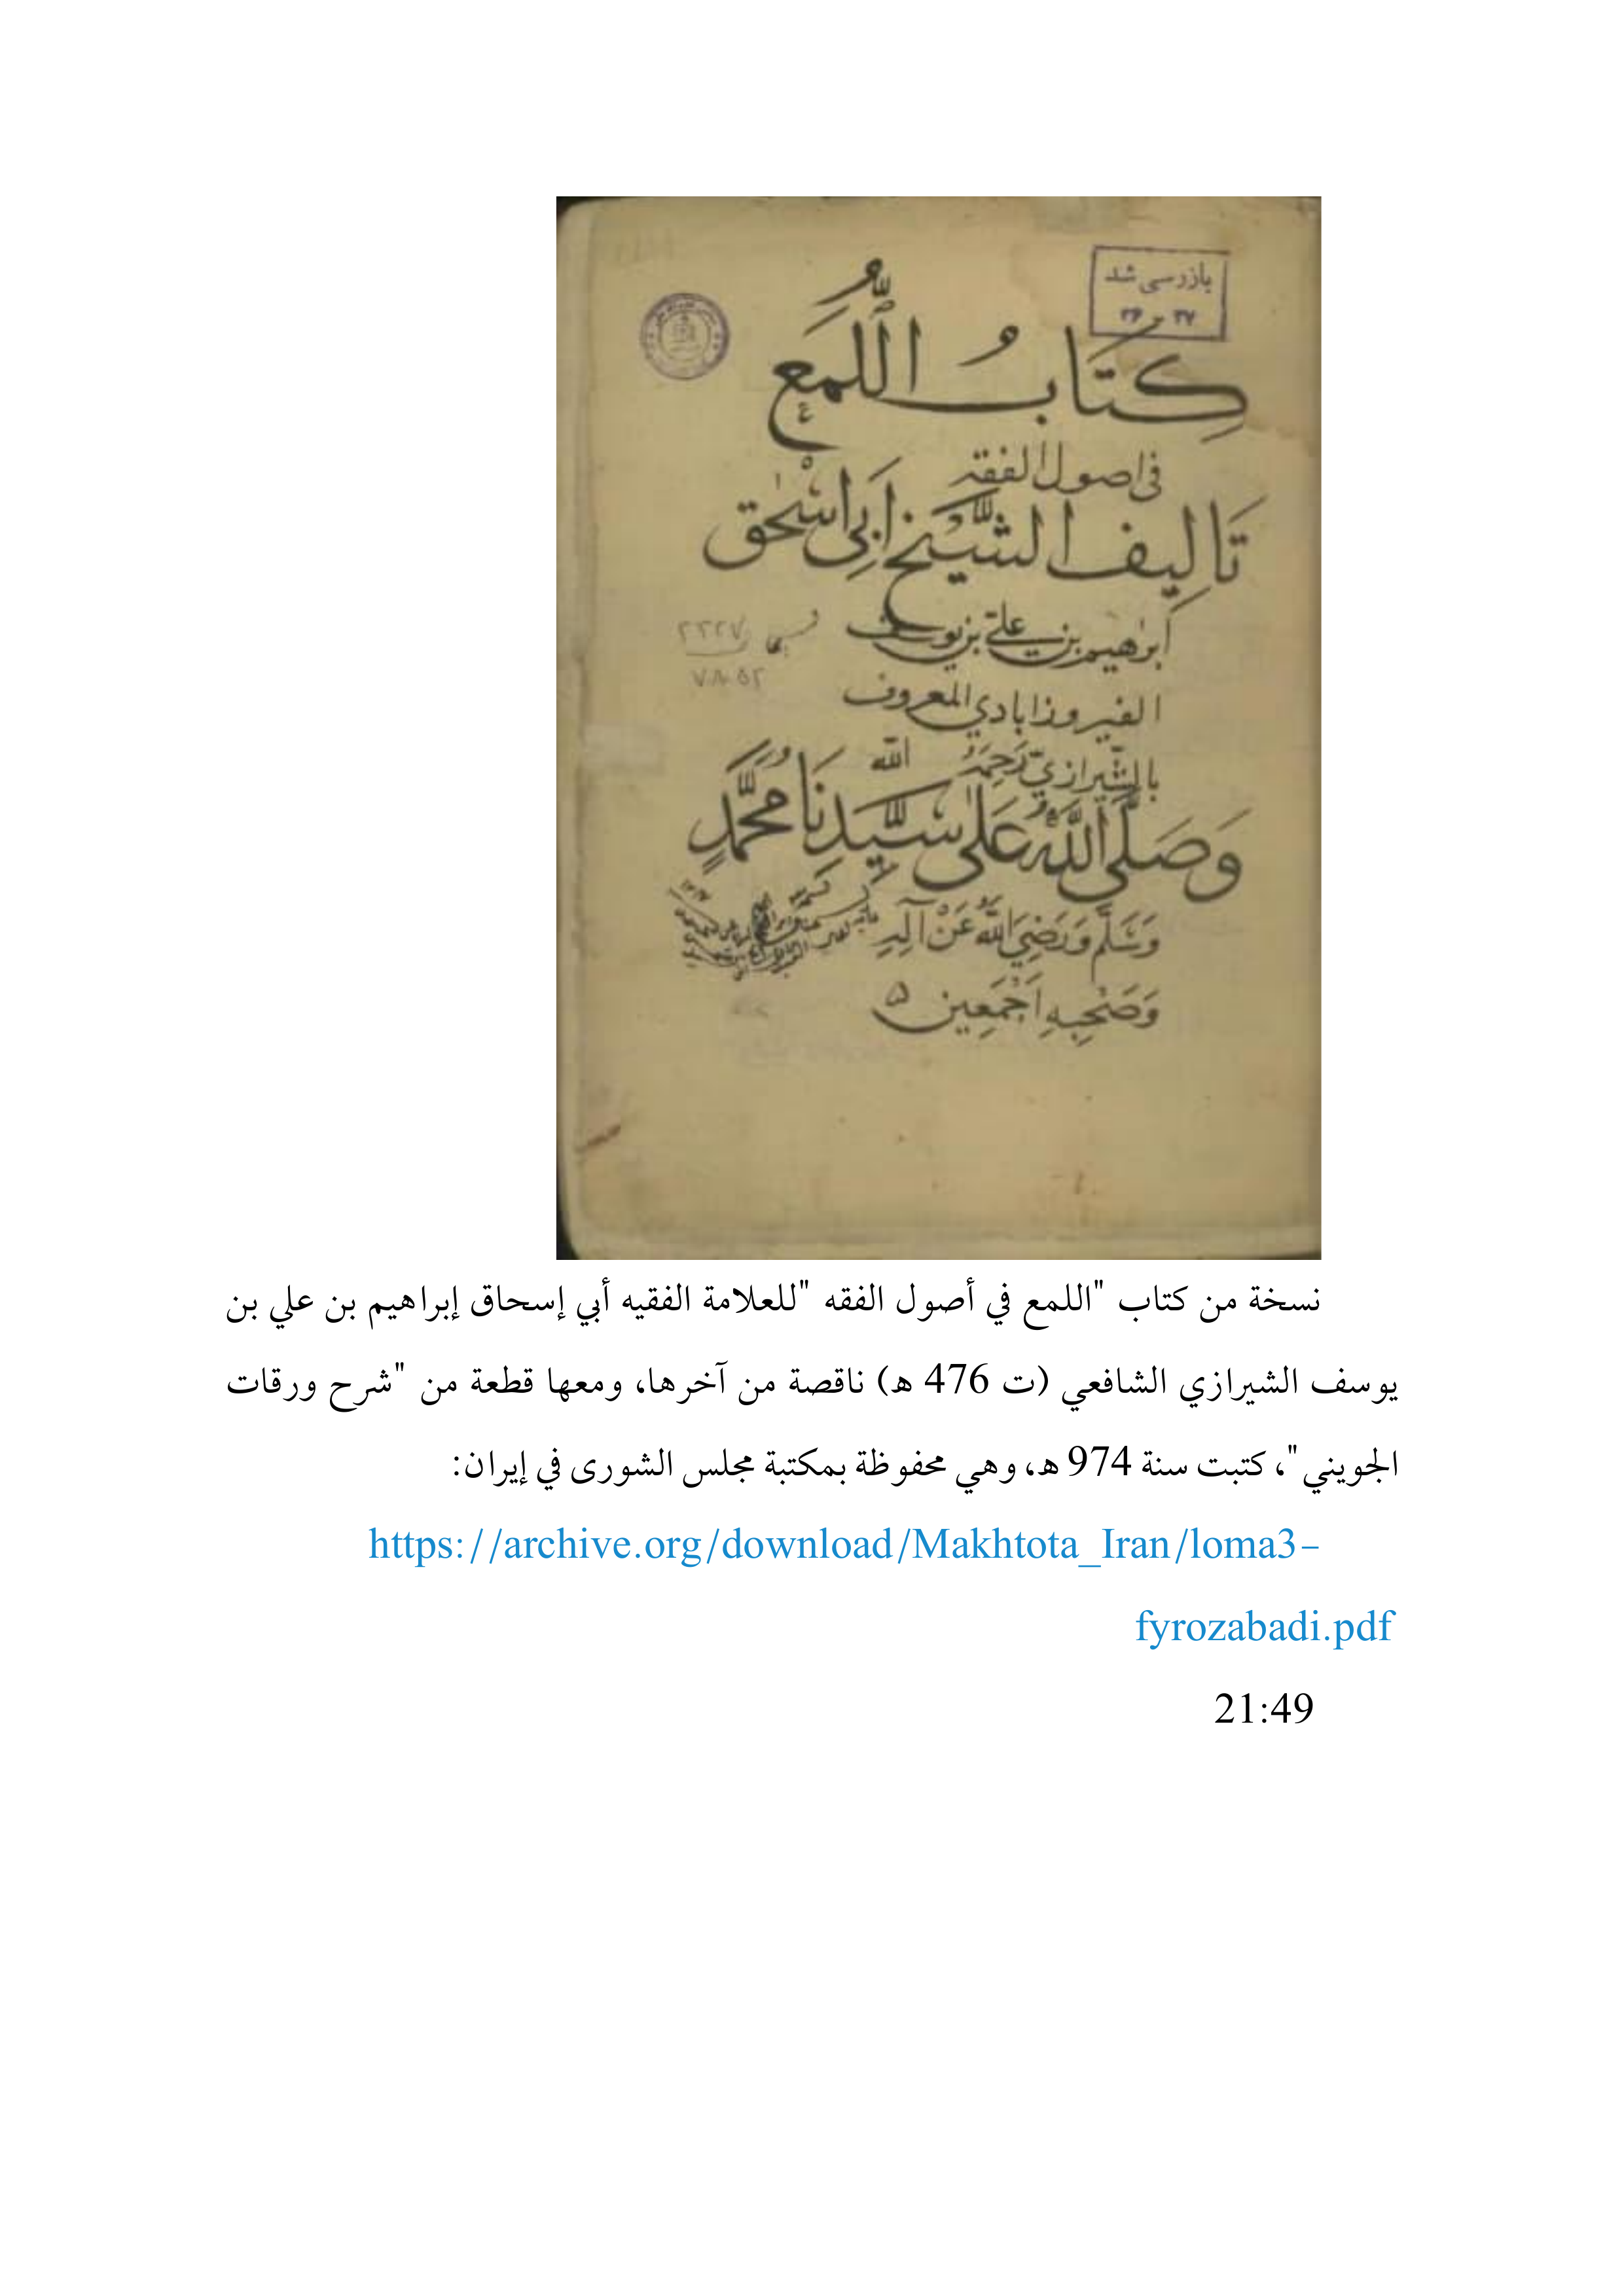 بازرسی شد
۳۶ - ۳۷
كِتَابُ اللُّمَع
في اصول الفقه
تَاليف الشَّيْخ أَبي اسْحٰق
أبرٰهيم بن علي بن يوسف
٢٢٢٧
٧٨٠٥٢
الفيروذابادي المعروف
بالشّيرازيّ رَحِمَهُ الله
وَصَلَّى اللَّهُ عَلَى سَيِّدِنَا مُحَمَّدٍ
وَسَلَّم وَرَضِيَ اللَّهُ عَنْ آلِهِ
وَصَحْبِهِ اَجْمَعِين ۵
نسخة من كتاب "اللمع في أصول الفقه "للعلامة الفقيه أبي إسحاق إبراهيم بن علي بن
يوسف الشيرازي الشافعي (ت 476 ه) ناقصة من آخرها، ومعها قطعة من "شرح ورقات
الجويني"، كتبت سنة 974 ه، وهي محفوظة بمكتبة مجلس الشورى في إيران:
https://archive.org/download/Makhtota_Iran/loma3-
fyrozabadi.pdf
21:49